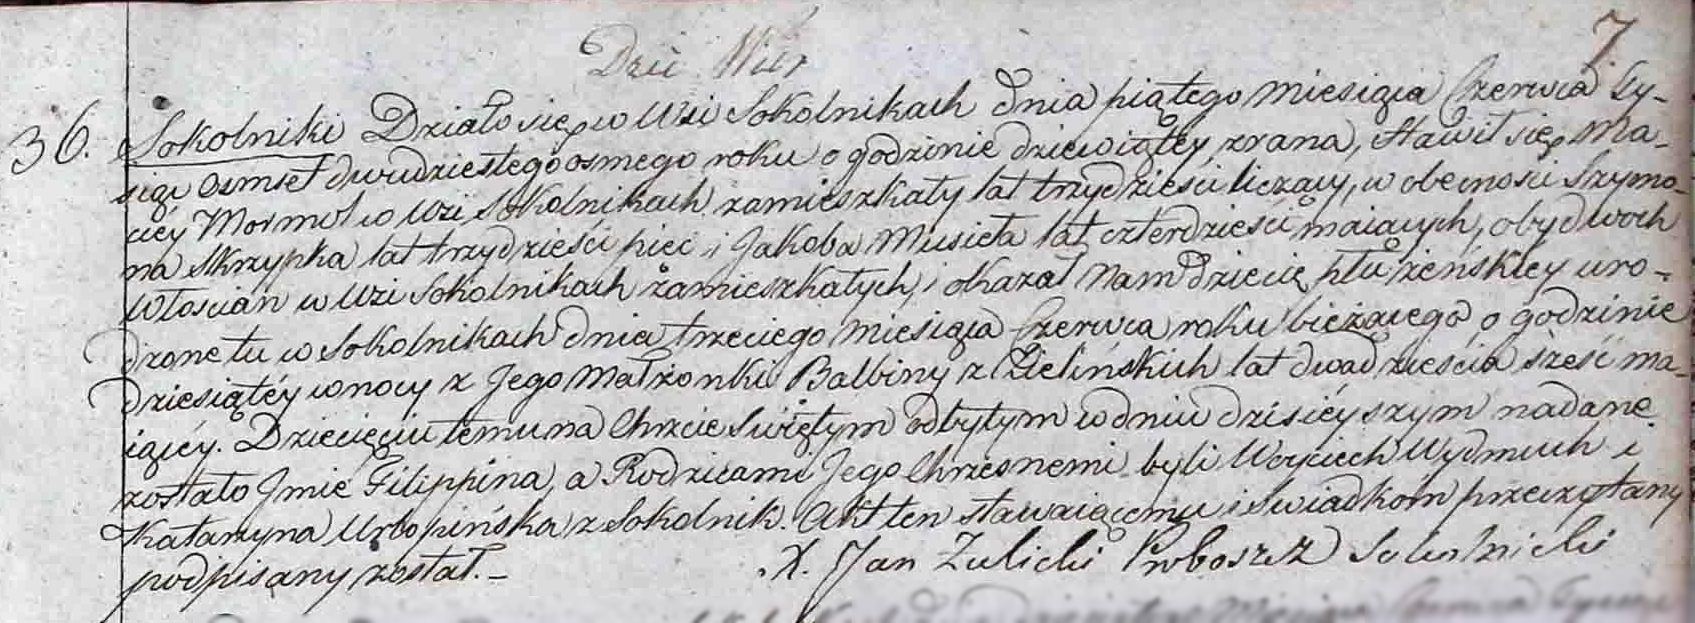 7.
Dzie
36. Sokolniki Działo się w Wsi Sokolnikach dnia piątego Miesiąca Czerwca Ty-
siąc osmset dwudziestego osmego roku o godzinie dziewiątey zrana, Stawił się Ma-
ciéy Mormul w Wsi Sokolnikach zamieszkały lat trzydzieści liczący, w obecności Szymo-
na Skrzypka lat trzydzieści pieć i Jakoba Musieła lat czterdzieści maiących, obydwoch
Włościan w Wsi Sokolnikach zamieszkałych, i okazał Nam dziecię płci żeńskiey uro-
dzone tu w Sokolnikach dnia trzeciego Miesiąca Czerwca roku bieżącego o godzinie
dziesiątéy w nocy z Jego Małżonki Balbiny z Zielińskich lat dwadzieścia sześć ma-
iącéy. Dziecięciu temu na Chrzcie Swiętym odbytym w dniu dzisiéyszym nadane
zostało Jmie Filippina, a Rodzicami Jego Chrzesnemi byli Woyciech Wydmuch i
Katarzyna Urbopińska z Sokolnik. Akt ten stawaiącemu i Swiadkom przeczytany
podpisany został.-
X. Jan Zulicki Proboszcz Sokolnicki